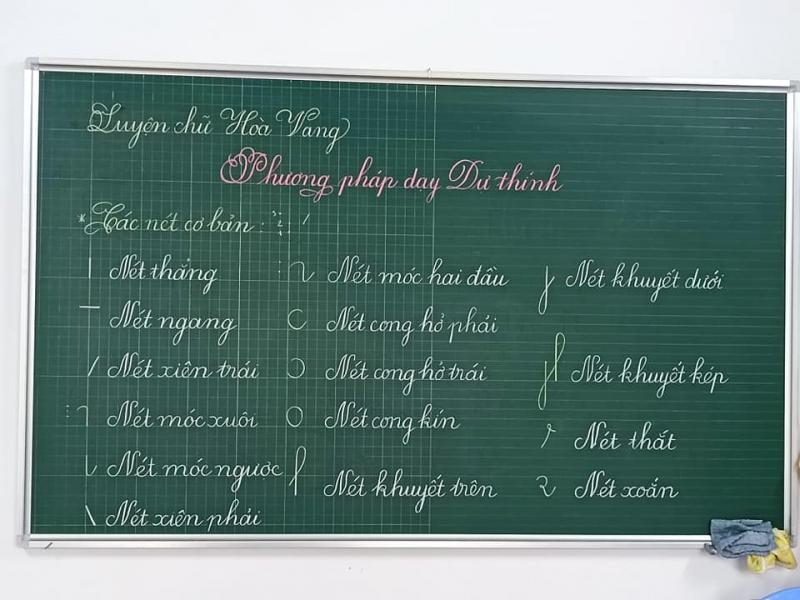 Luyện chữ Hoà Vang
Phương pháp day Dư thính
*Các nét cơ bản:
Nét thẳng
Nét ngang
Nét xiên trái
Nét móc xuôi
Nét móc ngược
Nét xiên phải
Nét móc hai đầu
Nét cong hở phải
Nét cong hở trái
Nét cong kín
Nét khuyết trên
Nét khuyết dưới
Nét khuyết kép
Nét thắt
Nét xoắn